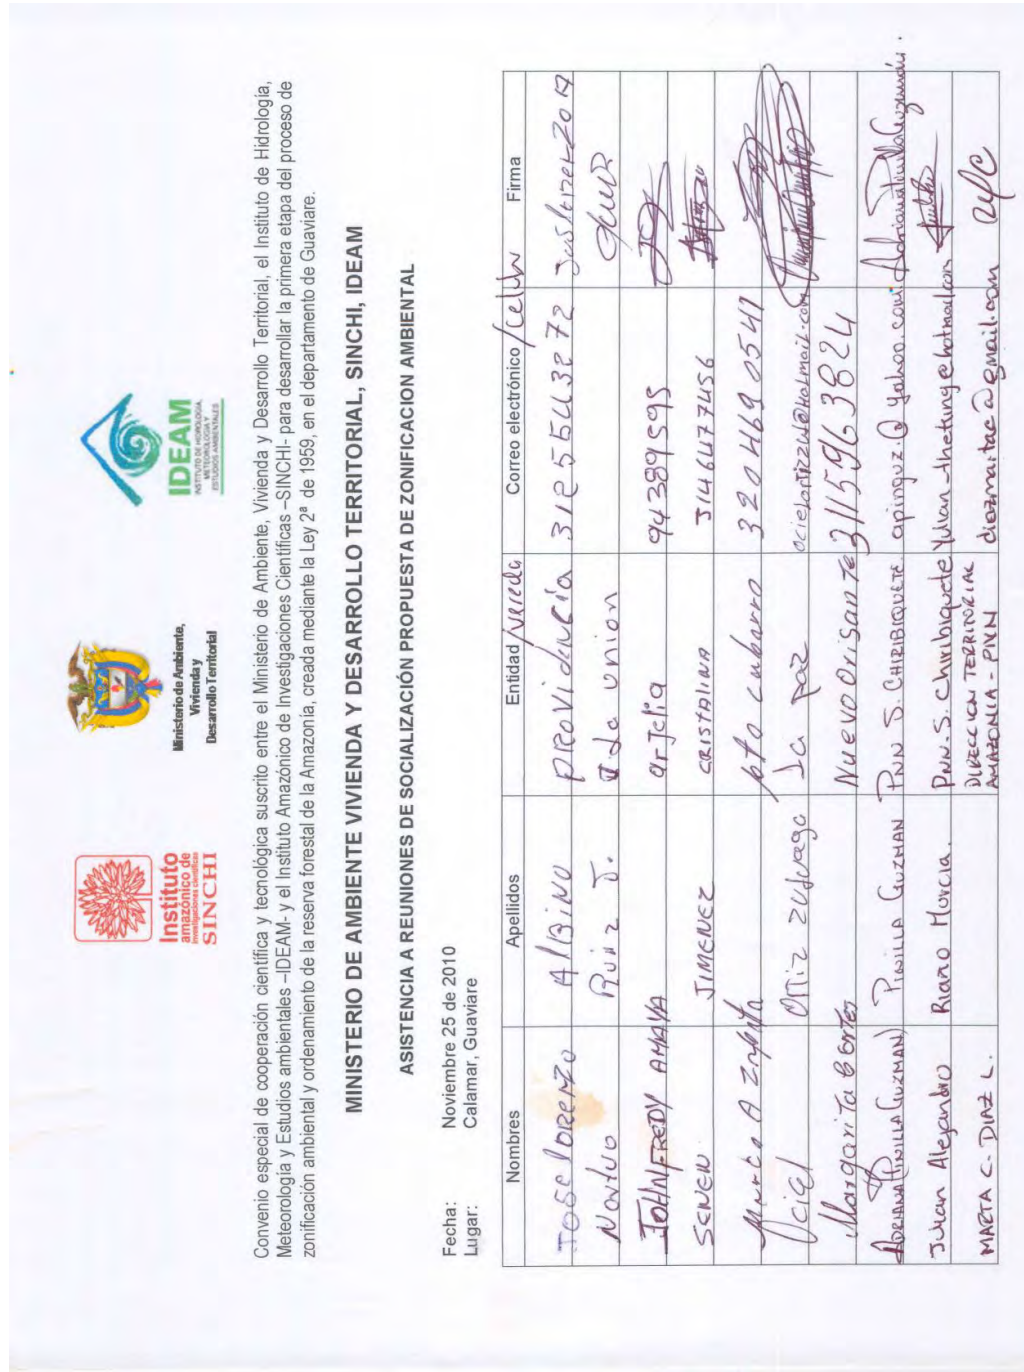 Instituto
amazónico de
investigaciones científicas
SINCHI
Ministerio de Ambiente,
Vivienda y
Desarrollo Territorial
IDEAM
INSTITUTO DE HIDROLOGÍA,
METEOROLOGÍA Y
ESTUDIOS AMBIENTALES
Convenio especial de cooperación científica y tecnológica suscrito entre el Ministerio de Ambiente, Vivienda y Desarrollo Territorial, el Instituto de Hidrología,
Meteorología y Estudios ambientales –IDEAM- y el Instituto Amazónico de Investigaciones Científicas –SINCHI- para desarrollar la primera etapa del proceso de
zonificación ambiental y ordenamiento de la reserva forestal de la Amazonia, creada mediante la Ley 2ª de 1959, en el departamento de Guaviare.
MINISTERIO DE AMBIENTE VIVIENDA Y DESARROLLO TERRITORIAL, SINCHI, IDEAM
ASISTENCIA A REUNIONES DE SOCIALIZACIÓN PROPUESTA DE ZONIFICACION AMBIENTAL
Fecha: Noviembre 25 de 2010
Lugar: Calamar, Guaviare
Nombres Apellidos Entidad /vereda Correo electrónico /celular Firma
JOSE LORENZO AlBINO PROVidencia 3125543272
Ruiz J. la union
JOHN FREDY AMAYA arjelia 94389 5595
SENEN JIMENEZ CRISTALINA 3146477456
Marco A pto cubarro 320 469 0541
Ociel Ortiz la paz
Margarita Cortes Nuevo Orisante 3115963824
ADRIANA PINILLA GUZMAN) PINILLA GUZMAN PNN S. CHIRIBIQUETE. apinguz@yahoo.com Adriana Pinilla Guzmán.
Julian Alejandro Riaño Murcia. PNN. S. Chiribiquete Yulian_thetung@hotmail.com
MARTA C. DIAZ L. DIRECCION TERRITORIAL
AMAZONIA - PNN diazmartac@gmail.com